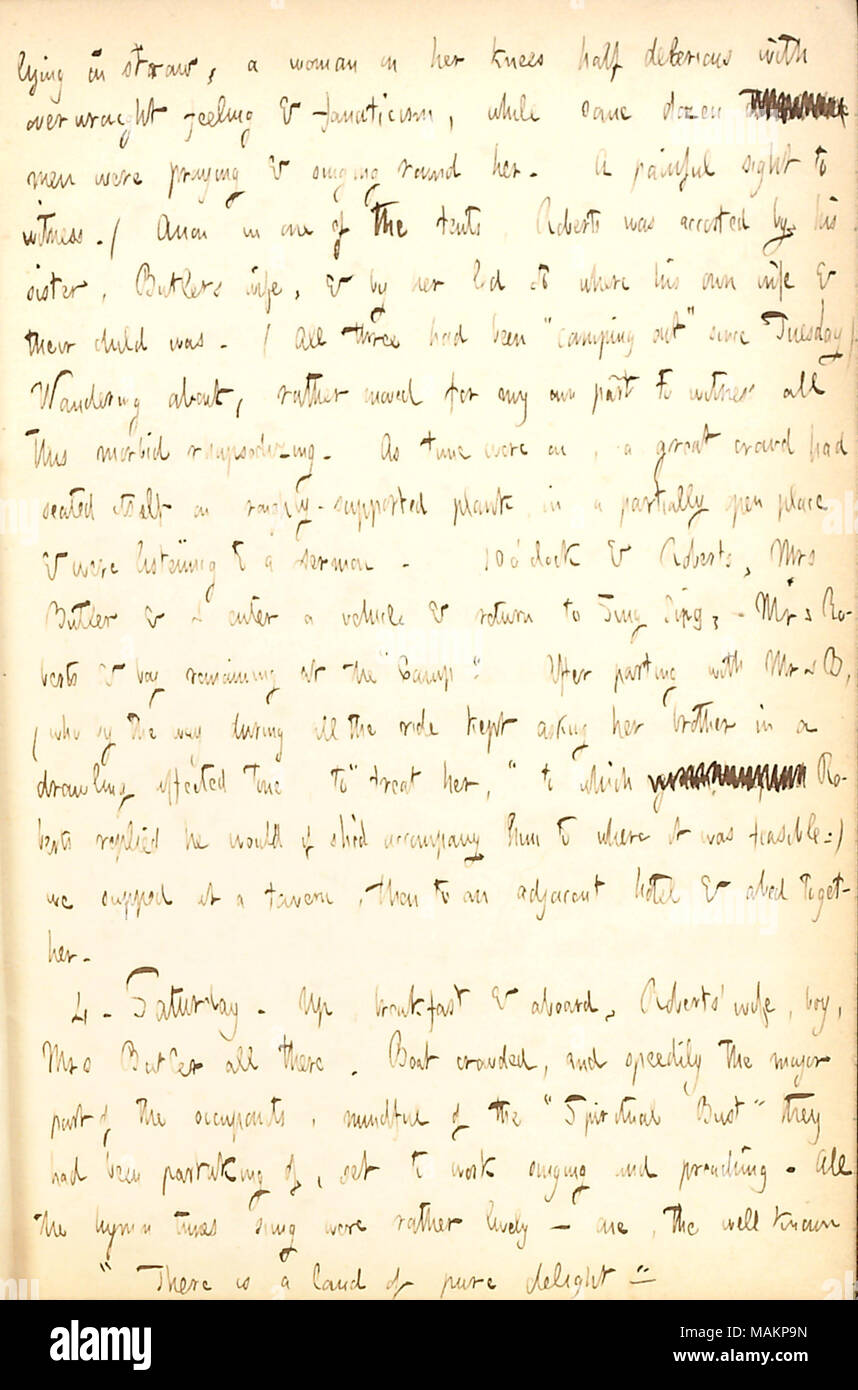 lying in straw, a woman on her knees half delerious with
overwraught feeling & fanaticism, while some dozen
men were praying & singing round her. A painful sight to
witness. / Anon in one of the tents, Roberts was accosted by his
sister, Butlers wife, & by her led to where his own wife &
their child was. ( All three had been "camping out" since Tuesday )
Wandering about, rather moved for my own part to witness all
this morbid rhapsodizing. As time wore on, a great crowd had
seated itself on roughly-supported plank, in a partially open place
& were listening to a sermon. 10 o'clock & Roberts, Mrs
Butler & I enter a vehicle & return to Sing Sing, - Mrs Ro-
berts & boy remaining at the "Camp". After parting with Mrs B,
( who by the way during all the ride kept asking her brother in a
drawling affected tone to "treat her," to which Ro-
berts replied he would if she'd accompany him to where it was feasible.)
we supped at a tavern, then to an adjacent hotel & abed toget-
her.
4. Saturday. Up, breakfast & aboard, Roberts' wife, boy,
Mrs Butler all there. Boat crowded, and speedily the major
part of the occupants, mindful of the "Spiritual Bust" they
had been partaking of, set to work singing and preaching. All
the hymn tunes sung were rather lively - one, the well known
"There is a land of pure delight"
alamy
alamy stock photo
MAKP9N
www.alamy.com